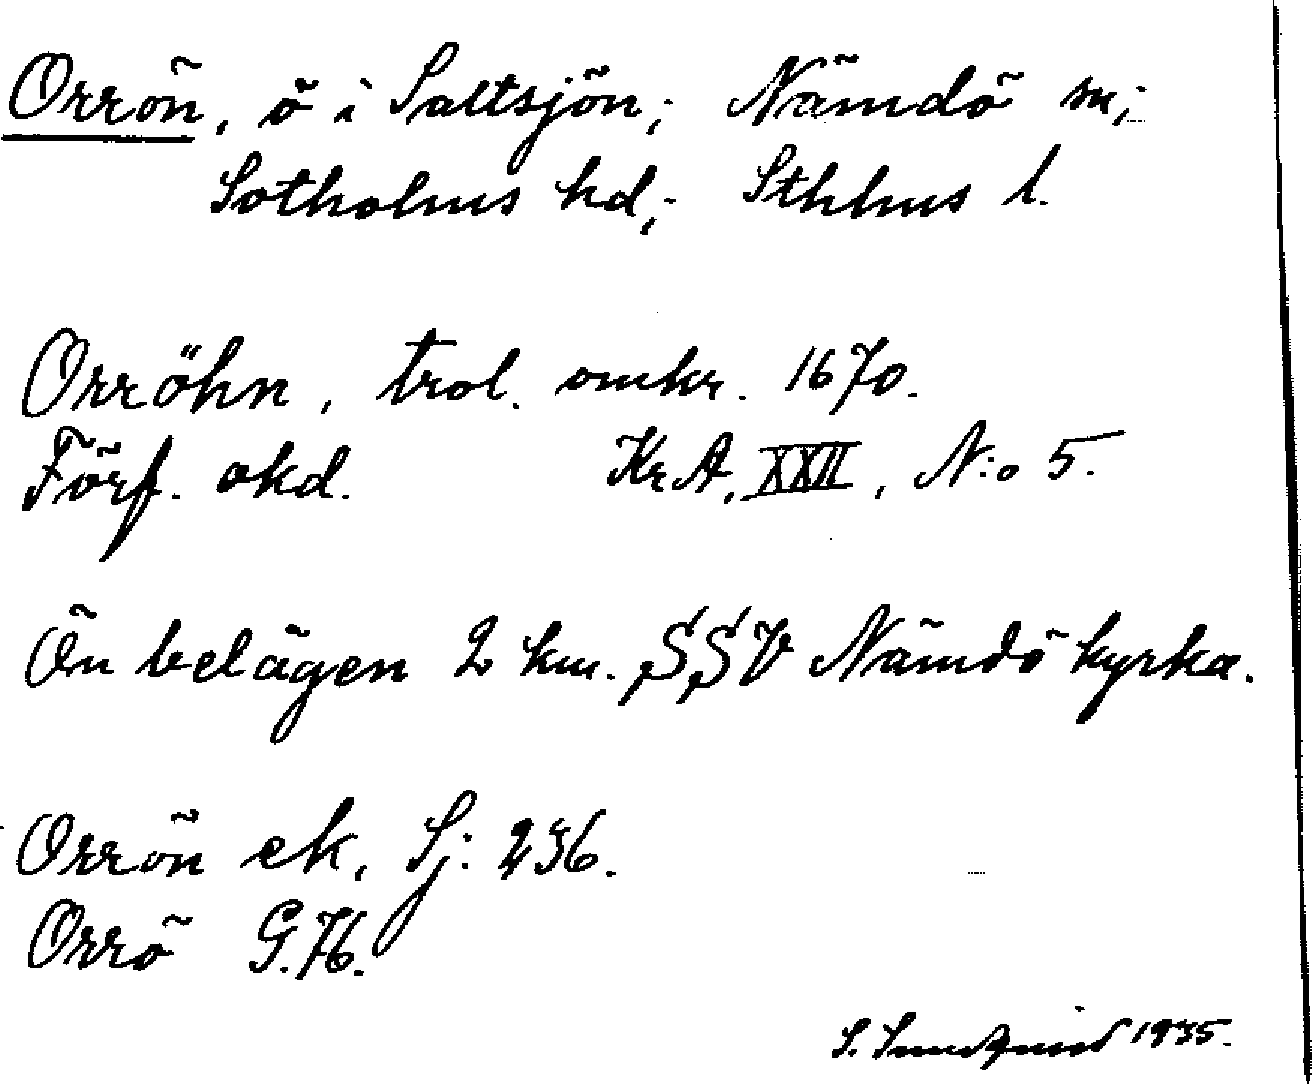 Orrön, ö i Saltsjön; Nämdö sn;
Sotholms hd; Sthlms l.
Orröhn, trol. omkr. 1670.
Förf. okd. KrA, XXII, N:o 5.
Ön belägen 2 km. SSV Nämdö kyrka.
Orrön ek, Sj: 236.
Orrö G.76.
S. 1935.